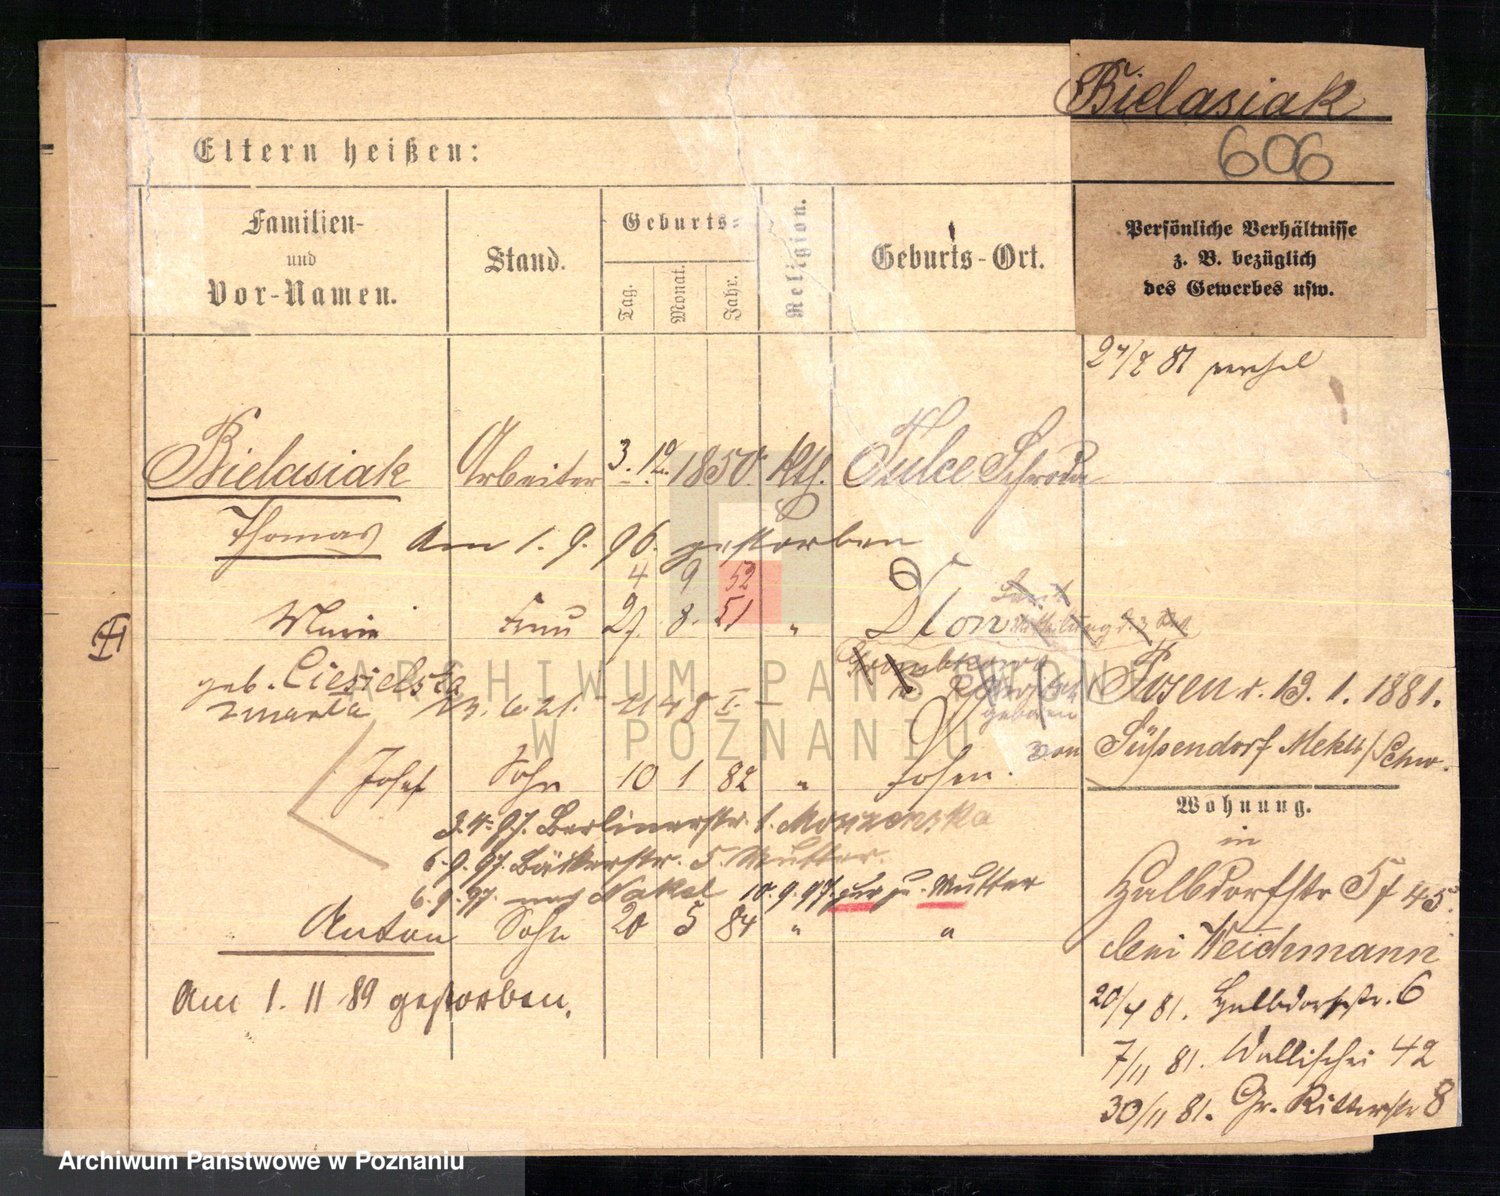 Bielasiak
606
Eltern heißen:
Familien-
und
Vor-Namen.
Stand.
Geburts-
Tag.
Monat.
Jahr.
Religion.
Geburts-Ort.
Persönliche Verhältnisse
z. B. bezüglich
des Gewerbes usw.
Bielasiak Arbeiter 3. 12. 1850 Kth. Tulce Schroda
Thomas Am 1. 9. 96. gestorben
4 9 52
Marie Frau 27. 8. 51 "
geb. Ciesielska
zmarła
Posen d. 19. 1. 1881.
von Süssendorf Mekl/Schw.
Josef Sohn 10 1 82 " Posen.
Berlinerstr.
6.9.97. Bäckerstr. 5. Mutter.
6.9.97. nach Nakel 10.9.97. zur Mutter
Anton Sohn 20 5 84 " "
Am 1. 11 89 gestorben.
Wohnung.
in
Halbdorfstr
bei Weichmann
81. Halbdorfstr. 6
7/11 81. Wallischei 42
30/11 81. Gr. Ritterstr 8
ARCHIWUM PAŃSTWOWE
W POZNANIU
Archiwum Państwowe w Poznaniu